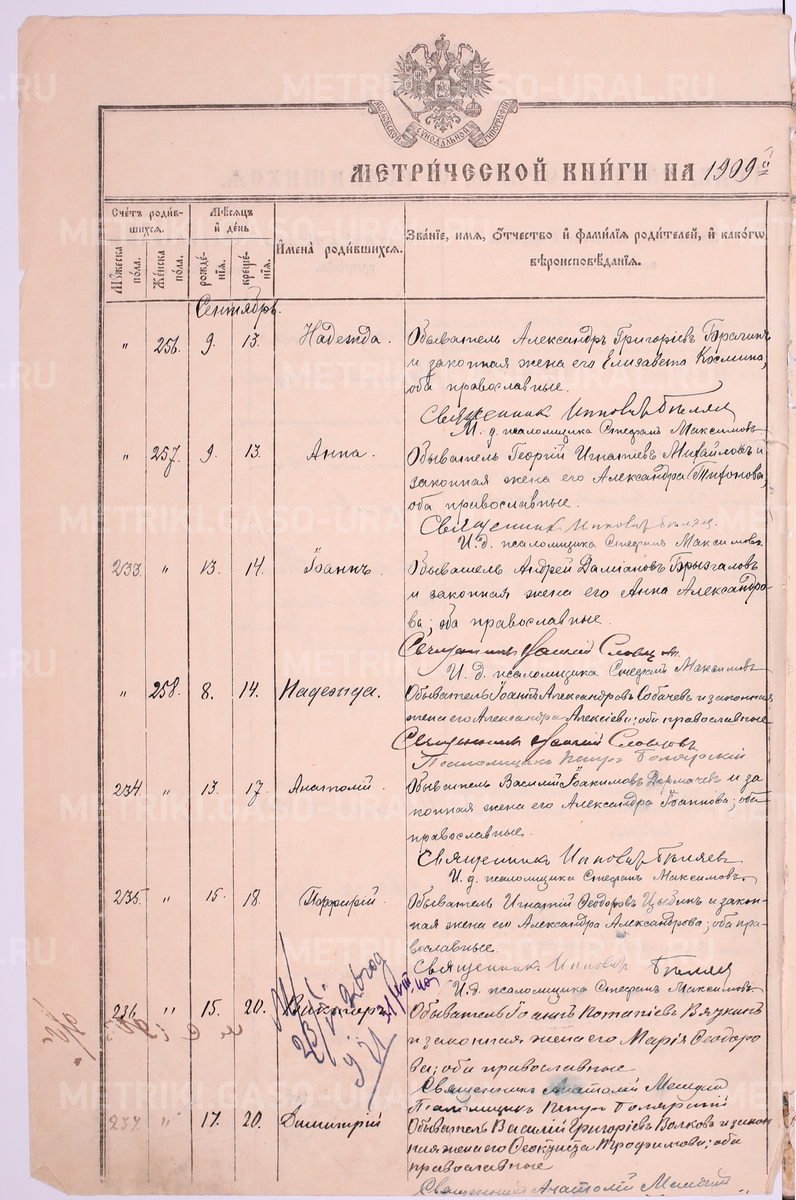 МОСКОВСКОЙ СУНОДАЛЬНОЙ ТИПОГРАФІИ
МЕТРИ́ЧЕСКОЙ КНИ́ГИ НА 1909 й
Сче́тъ роди́в-
шихся.
Му́жеска
по́ла.
Же́нска
по́ла.
Мѣ́сяцъ
и҆ де́нь
рожде́-
нія.
креще́-
нія.
И҆мена̀ роди́вшихся.
Зва́ніе, имя, о҆́тчество и҆ фами́лїя роди́телей, и҆ како́гѡ
вѣроисповѣ́данїя.
Сентябрь.
" 256. 9. 13. Надежда. Обыватель Александръ Григоріевъ Брагинъ
и законная жена его Елизавета Космина,
оба православные.
Священник Иппо Бѣляев
И. д. псаломщика Стефанъ Максимовъ
" 257. 9. 13. Анна. Обыватель Георгій Игнатіевъ Михайловъ и
законная жена его Александра Тихонова,
оба православные.
Священник
И. д. псаломщика Стефанъ Максимовъ.
233. " 13. 14. Іоаннъ. Обыватель Андрей Даміановъ Брызгаловъ
и законная жена его Анна Александро-
ва; оба православные.
Священник Словцов
И. д. псаломщика Стефанъ Максимовъ
" 258. 8. 14. Надежда. Обыватель Іоаннъ Александровъ Собачевъ и законная
жена его Александра Алексіева; оба православные
Священникъ Словцовъ
Псаломщикъ Петръ Боярскій
234. " 13. 17. Анатолій. Обыватель Василій Іоакимовъ Дормачевъ и за
конная жена его Александра Іоаннова; оба
православные.
Священникъ Бѣляевъ
И. д. псаломщика Стефанъ Максимовъ
235. " 15. 18. Порфирій. Обыватель Игнатій Ѳеодоровъ Цыбинъ и закон-
ная жена его Александра Александрова; оба пра-
вославные.
Священник
И. д. псаломщика Стефанъ Максимовъ
236. " 15. 20. Викторъ. Обыватель Іоаннъ Потапіевъ Вяткинъ
и законная жена его Марія Ѳеодоро
ва; оба православные
Священникъ Анатолій
Псаломщикъ Петръ Боярскій
237. " 17. 20. Димитрій Обыватель Василій Григоріевъ Волковъ и закон
ная жена его Ѳеоктиста Трофимова; оба
православные
Священникъ Анатолій